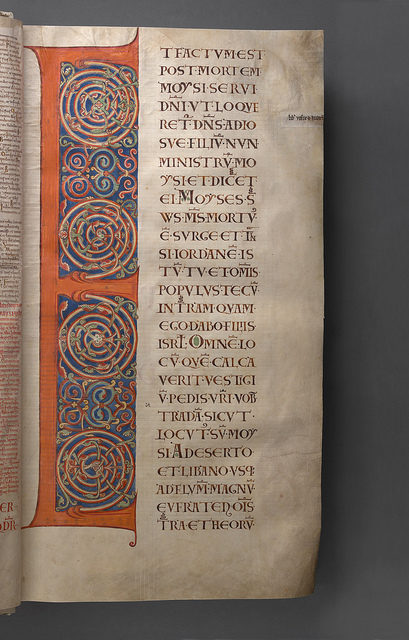 E
TFACTVMEST
POSTMORTEM
MOYSI·SERVI
DNI·VT·LOQVE
RET·DNS·ADIO
SVE·FILIV·NVN·
MINISTRV·MO
YSI·ET·DICET
EI·MOYSES S
WS·MS·MORTV
E·SVRGE·ET·TN
SI·IORDANE·IS
TV·TV·ET·OMIS
POPVLVS·TECV
INTRAM·QVAM·
EGO·DABO·FILIIS
ISRL·OMNE·LO
CV·QVE·CALCA
VERIT·VESTIGI
V·PEDIS·VRI·VOB
TRADA·SICVT·
LOCVT·SV·MOY
SI·A DESERTO·
ET·LIBANO·VSQ·
AD FLVM·MAGNV·
EVFRATEN OIS
TRA·ETHEORV·